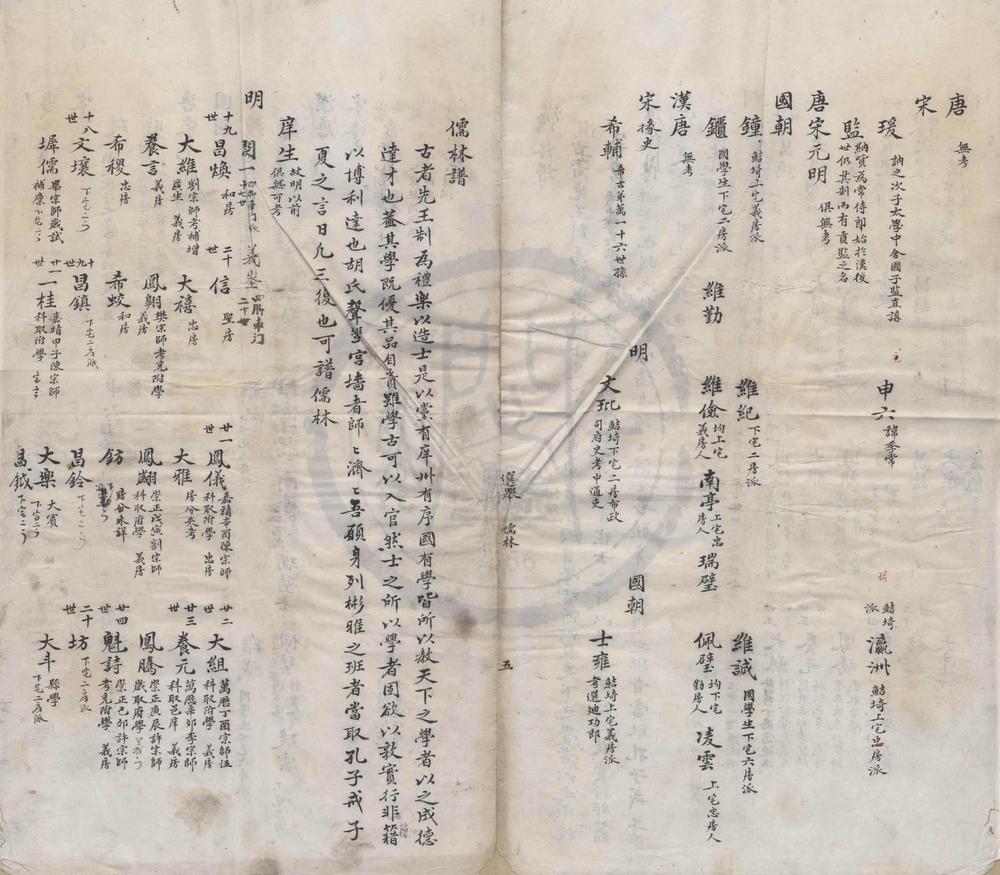 唐 無考
宋
瑗 訥之次子太學中舍國子監直講
申六 諱季常
監 納貲為常侍郎始於漢後世仍其制而有貢監之名
唐宋元明 俱無考
國朝
鐘 鮚埼上宅義房派
鑼 國學生下宅二房派
維勤
維紀 下宅二房派
維儉 均上宅義房人
南亭 上宅忠房人
瑞璧
維誠 國學生下宅六房派
佩璧 均下宅勤房人
凌雲 上宅忠房人
鮚埼派
瀛洲 鮚埼上宅忠房派
漢唐 無考
宋 掾史
希輔 希古弟萬一十六世孫
明
文玭 鮚埼下宅二房布政司府史考中通吏
國朝
士雍 鮚埼上宅義房派考選迪功郎
選舉 儒林
五
儒林譜
古者先王制為禮樂以造士是以黨有庠州有序國有學皆所以教天下之學者以之成德
達才也蓋其學既優其品自貴雖學古可以入官然士之所以學者固欲以敦實行非籍
以博利達也胡氏聲黌宮墻者師〻濟〻吾願身列彬雅之班者當取孔子戒子
夏之言日凡三復也可譜儒林
庠生 故明以前俱無可考
明
十九世 昌煥 和房
二十世 信 聖房
廿一世 鳳儀 嘉靖辛酉陳宗師科取附學 忠房
廿二世 大組 萬曆丁酉宗師伍科取附學 義房
大維 劉宗師考補增廣生 義房
大禧 忠房
大雅 房分失考
廿三世 養元 萬曆辛卯李宗師科取邑庠 義房
養言 義房
鳳翱 樊宗師考充附學 義房
鳳翽 崇正戊寅劉宗師科取府學 義房
鳳騰 崇正庚辰許宗師歲取府學
希稷 忠房
希蛟 和房
鈁 房分未詳
廿四世 魁詩 崇正己卯許宗師考充附學 義房
十八世 文壤
十九世 昌鎮 下宅二房派
昌鈴
二十世 坊 下宅二房派
墀儒 畢宗師歲試
廿一世 一桂 嘉靖甲子陳宗師科取附學
大樂 大賓
大斗 縣學 下宅二房派
昌鉞